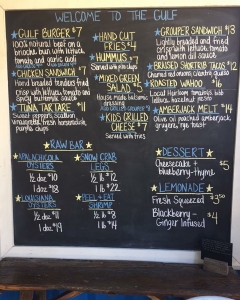 WELCOME TO THE GULF
GULF BURGER $7
100% natural beef on a
brioche bun with lettuce
tomato and garlic aioli
CHICKEN SANDWICH $7
Hand breaded tenders fried
crisp with lettuce tomato and
spicy buttermilk sauce
TUNA TARTARE $11
Sweet peppers, scallion,
vinaigrette, fresh horseradish,
purple chips
HAND CUT
FRIES $4
HUMMUS $7
Served with pita chips
MIXED GREEN
SALAD $5
House made balsamic
dressing
KIDS GRILLED
CHEESE $7
Served with fries
GROUPER SANDWICH $13
Lightly breaded and fried
crisp with lettuce, tomato
and lemon dill sauce
ROASTED WAHOO $16
AMBERJACK MELT $14
Olive oil poached amberjack,
gruyere, rye toast
RAW BAR
APALACHICOLA
OYSTERS
½ doz $10
1 doz $18
LOUISIANA
OYSTERS
½ doz $11
1 doz $19
SNOW CRAB
LEGS
½ lb $12
1 lb $22
PEEL + EAT
SHRIMP
½ lb $8
1 lb $14
DESSERT
Cheesecake + $5
blueberry-thyme
LEMONADE
Fresh Squeezed $3.50
Blackberry - $4
Ginger Infused